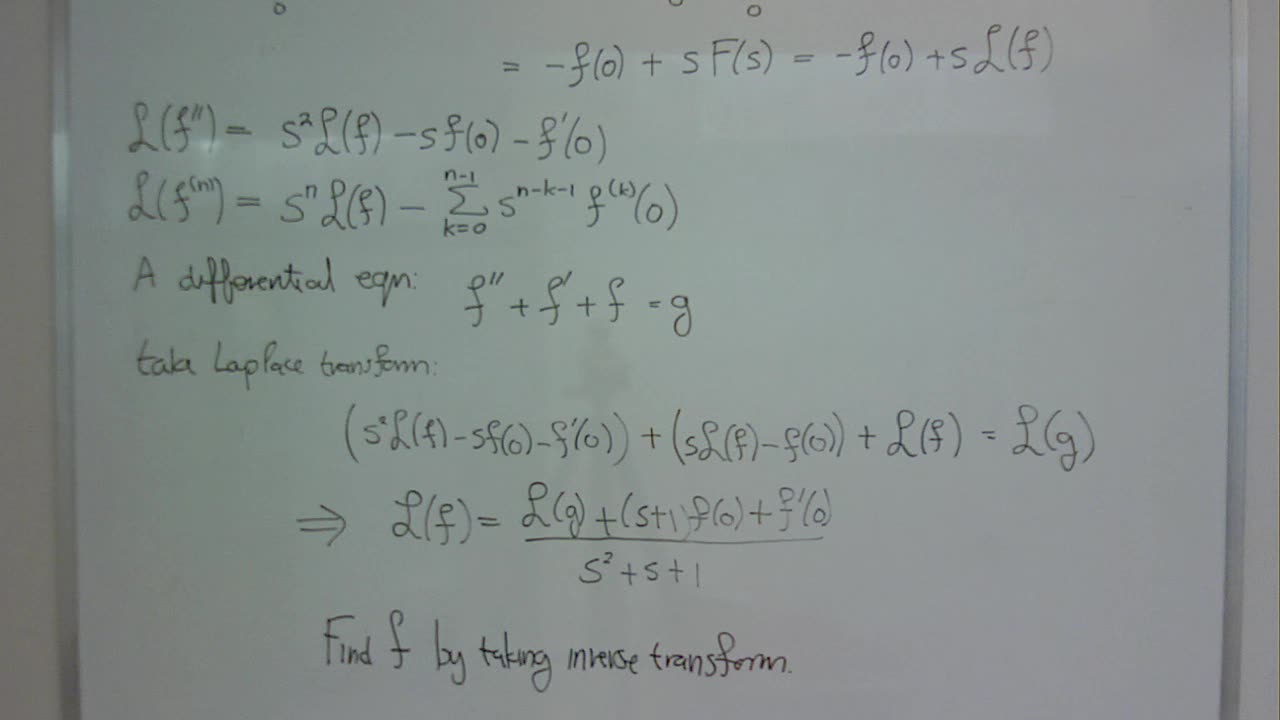 0 0 0
= -f(0) + s F(s) = -f(0) + s ℒ(f)
ℒ(f'') = s²ℒ(f) - s f(0) - f'(0)
ℒ(f⁽ⁿ⁾) = sⁿℒ(f) - ∑_{k=0}^{n-1} s^{n-k-1} f^{(k)}(0)
A differential eqn: f'' + f' + f = g
take Laplace transform:
(s²ℒ(f) - sf(0) - f'(0)) + (sℒ(f) - f(0)) + ℒ(f) = ℒ(g)
⇒ ℒ(f) = (ℒ(g) + (s+1)f(0) + f'(0)) / (s² + s + 1)
Find f by taking inverse transform.